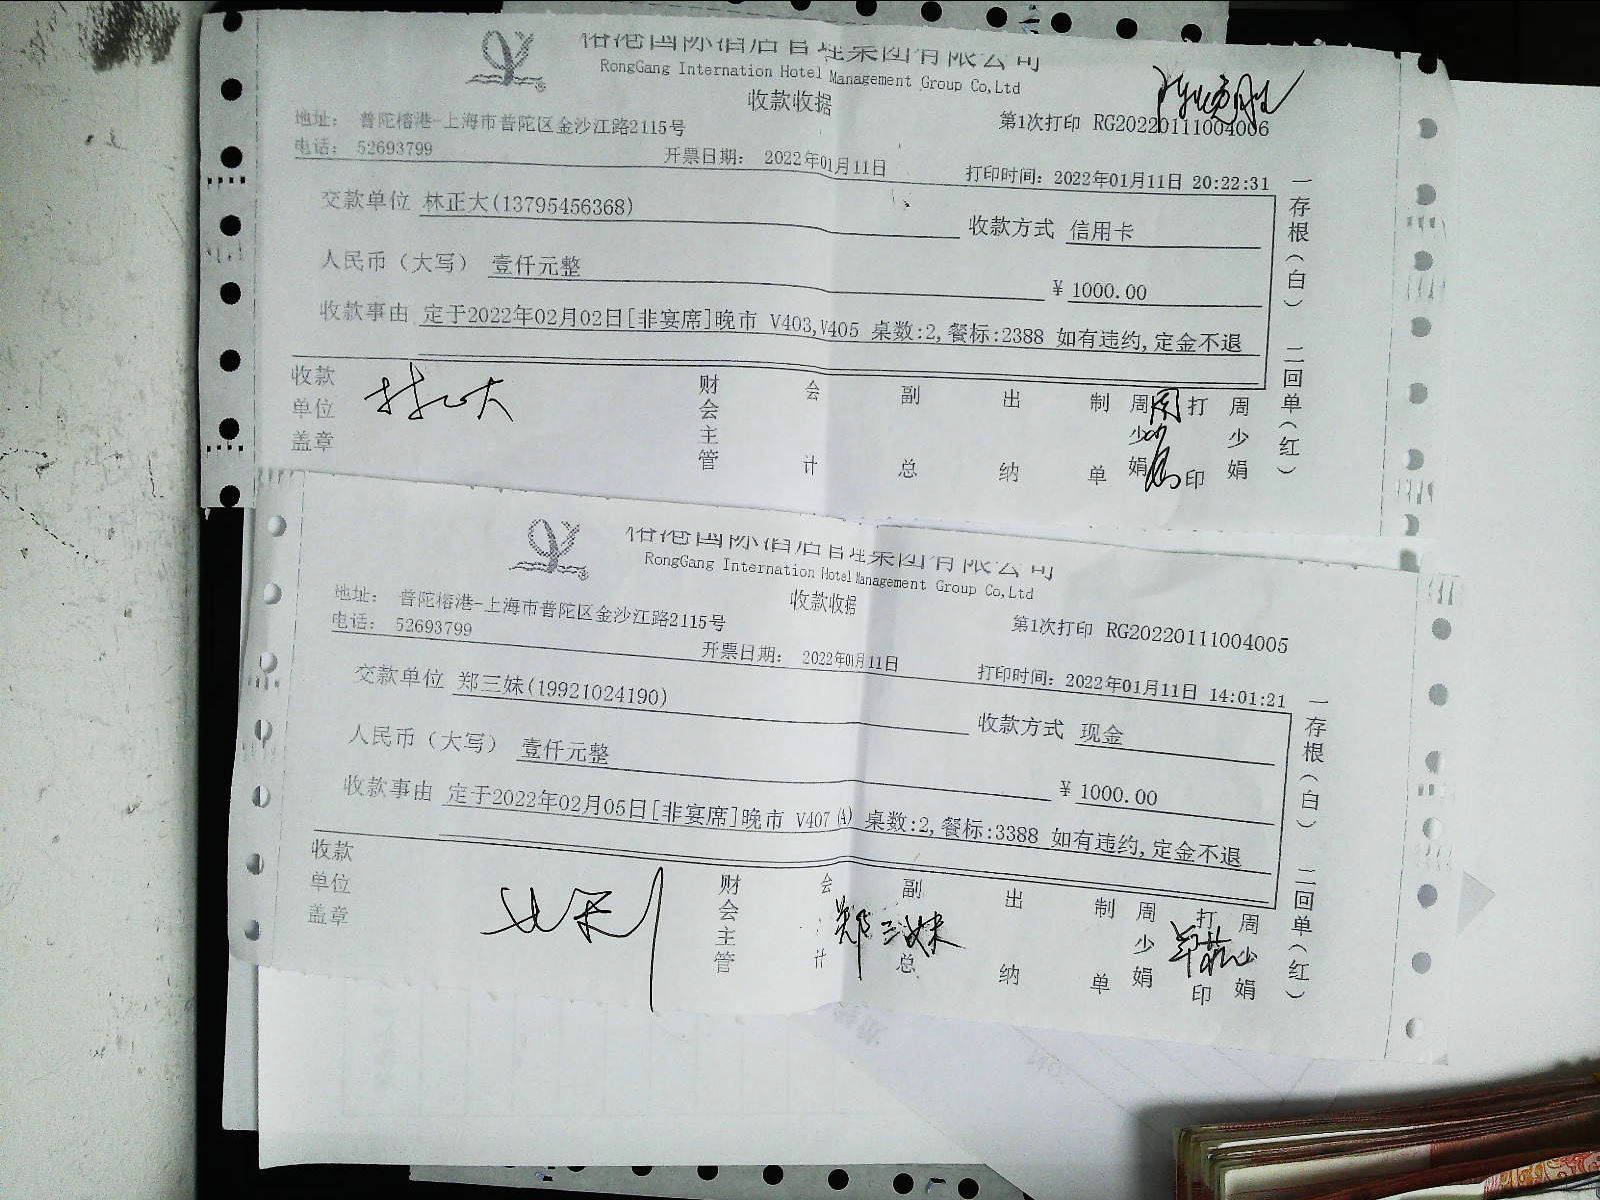 榕港国际酒店管理集团有限公司
RongGang Internation Hotel Management Group Co,Ltd
收款收据
地址： 普陀榕港-上海市普陀区金沙江路2115号
第1次打印 RG20220111004006
电话： 52693799
开票日期： 2022年01月11日
打印时间：2022年01月11日 20:22:31
交款单位 林正大(13795456368)
收款方式 信用卡
人民币（大写） 壹仟元整
¥ 1000.00
收款事由 定于2022年02月02日[非宴席]晚市 V403,V405 桌数:2,餐标:2388 如有违约,定金不退
收款单位盖章
林正大
财会主管
会计
副总
出纳
制单
周少娟
打印
周少娟
一存根（白） 二回单（红）
榕港国际酒店管理集团有限公司
RongGang Internation Hotel Management Group Co,Ltd
收款收据
地址： 普陀榕港-上海市普陀区金沙江路2115号
第1次打印 RG20220111004005
电话： 52693799
开票日期： 2022年01月11日
打印时间：2022年01月11日 14:01:21
交款单位 郑三妹(19921024190)
收款方式 现金
人民币（大写） 壹仟元整
¥ 1000.00
收款事由 定于2022年02月05日[非宴席]晚市 V407(A) 桌数:2,餐标:3388 如有违约,定金不退
收款单位盖章
财会主管
会计
郑三妹
副总
出纳
制单
周少娟
打印
周少娟
一存根（白） 二回单（红）